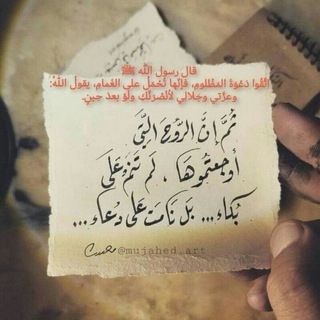 قال رسول الله ﷺ
اتَّقُوا دَعْوَةَ المَظْلومِ، فَإِنَّها تُحْمَلُ على الغَمامِ، يَقولُ اللهُ:
وعِزَّتي وجَلالي لأنصُرَنَّكِ ولَوْ بعدَ حينٍ.
ثُمَّ إِنَّ الرُّوحَ الَّتِي
أَوجَعتُمُوهَا، لَم تَنَمْ عَلَى
بُكاء... بَل نَامَت عَلى دُعاء...
@mujahed_art